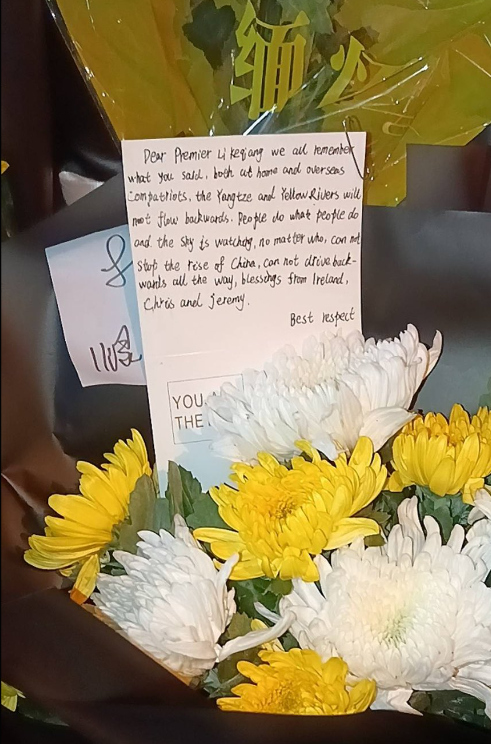 缅
Dear Premier Li Keqiang we all remember
what you said, both at home and overseas
compatriots, the Yangtze and Yellow Rivers will
not flow backwards. People do what people do
and the Sky is watching, no matter who, can not
stop the rise of China, can not drive back-
wards all the way, blessings from Ireland,
Chris and Jeremy.
Best respect
YOU
THE